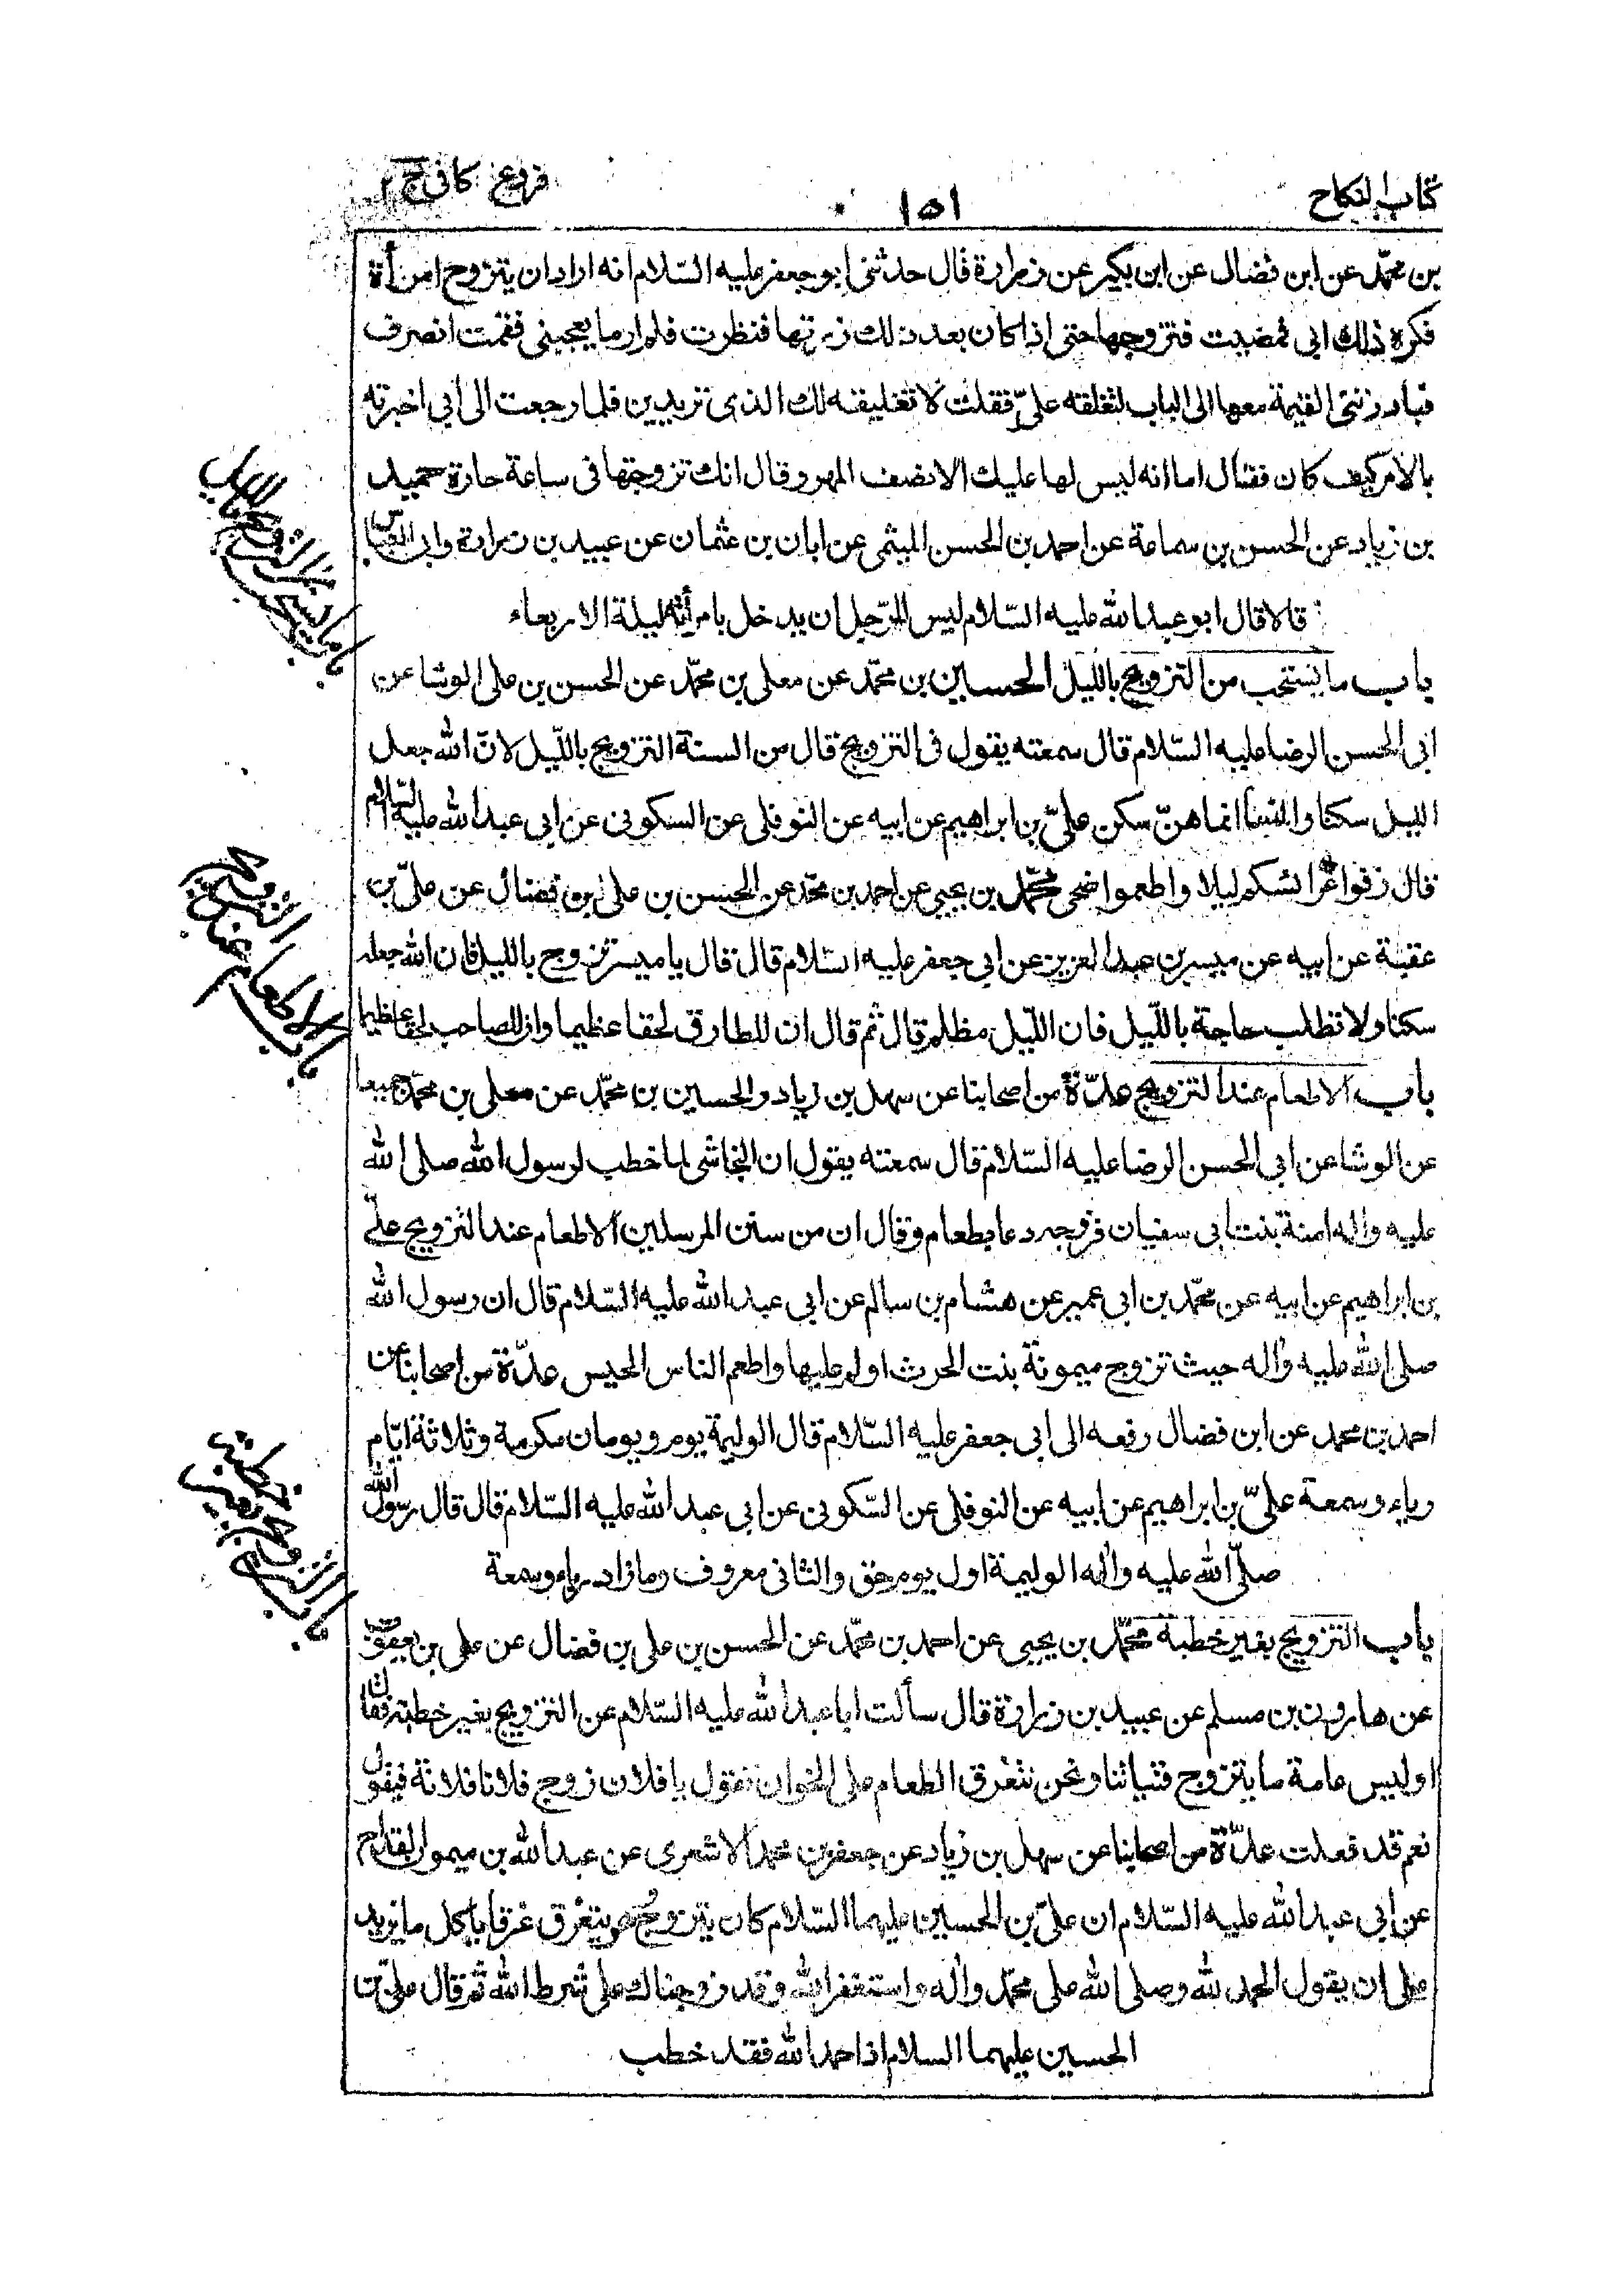 كتاب النكاح
١٥١
فروع كافى ج ٢
بن محمّد عن ابن فضال عن ابن بكير عن زرارة قال حدثنى ابو جعفر عليه السّلام انه اراد ان يتزوج امرأة
فكره ذلك ابى فمضيت فتزوجها حتى اذا كان بعد ذلك زرتها فنظرت فلم ار ما يعجبنى فقمت انصرف
فبادرتنى القيمة معها الى الباب لتغلقه علىّ فقلت لا تغليقه لك الذى تريدين فلما رجعت الى ابى اخبرته
بالامر كيف كان فقال اما انه ليس لها عليك الا نصف المهر و قال انك تزوجتها فى ساعة حارة حميد
بن زياد عن الحسن بن سماعة عن احمد بن الحسن الميثمى عن ابان بن عثمان عن عبيد بن زرارة وابى العباس
قالا قال ابو عبد الله عليه السّلام ليس للرّجل ان يدخل بامرأته ليلة الاربعاء
باب ما يستحب من التزويج بالليل الحسين بن محمّد عن معلى بن محمّد عن الحسن بن على الوشا عن
ابى الحسن الرضا عليه السّلام قال سمعته يقول فى التزويج قال من السنة التزويج باللّيل لانّ الله جعل
الليل سكنا والنساء انما هنّ سكن علىّ بن ابراهيم عن ابيه عن النوفلى عن السكونى عن ابى عبد الله عليه السّلام
قال زفوا عرائسكم ليلا واطعموا ضحى محمّد بن يحيى عن احمد بن محمّد عن الحسن بن على بن فضال عن علىّ بن
عقبة عن ابيه عن ميسر بن عبد العزيز عن ابى جعفر عليه السّلام قال قال يا ميسر تزوج بالليل فان الله جعله
سكنا ولا تطلب حاجة باللّيل فان اللّيل مظلم قال ثم قال ان للطارق لحقا عظيما وان للصاحب لحقا عظيما
باب الاطعام عند التزويج عدّة من اصحابنا عن سهل بن زياد والحسين بن محمّد عن معلى بن محمّد جميعا
عن الوشا عن ابى الحسن الرضا عليه السّلام قال سمعته يقول ان النجاشى لما خطب لرسول الله صلى الله
عليه واله امنة بنت ابى سفيان فزوجه دعا بطعام وقال ان من سنن المرسلين الاطعام عند التزويج علىّ
بن ابراهيم عن ابيه عن محمّد بن ابى عمير عن هشام بن سالم عن ابى عبد الله عليه السّلام قال ان رسول الله
صلى الله عليه واله حيث تزوج ميمونة بنت الحرث اولم عليها واطعم الناس الحيس عدّة من اصحابنا عن
احمد بن محمد عن ابن فضال رفعه الى ابى جعفر عليه السّلام قال الوليمة يوم ويومان مكرمة وثلاثة ايّام
رياء وسمعة علىّ بن ابراهيم عن ابيه عن النوفلى عن السّكونى عن ابى عبد الله عليه السّلام قال قال رسول الله
صلّى الله عليه واله الوليمة اول يوم حق والثانى معروف وما زاد رياء وسمعة
باب التزويج بغير خطبة محمّد بن يحيى عن احمد بن محمّد عن الحسن بن على بن فضال عن على بن يعقوب
عن هارون بن مسلم عن عبيد بن زرارة قال سألت ابا عبد الله عليه السّلام عن التزويج بغير خطبة فقال
اوليس عامة ما يتزوج فتياتنا ونحن نتعرق الطعام على الخوان نقول يا فلان زوج فلانا فلانة فيقول
نعم قد فعلت عدّة من اصحابنا عن سهل بن زياد عن جعفر بن محمد الاشعرى عن عبد الله بن ميمون القداح
عن ابى عبد الله عليه السّلام ان علىّ بن الحسين عليهما السّلام كان يتزوج وهو يتعرق عرقا ياكل ما يزيد
على ان يقول الحمد لله وصلى الله على محمّد واله واستغفر الله وقد زوجناك على شرط الله ثم قال علىّ بن
الحسين عليهما السلام اذا حمد الله فقد خطب
باب ما يستحب من التزويج بالليل
باب الاطعام عند التزويج
باب التزويج بغير خطبة